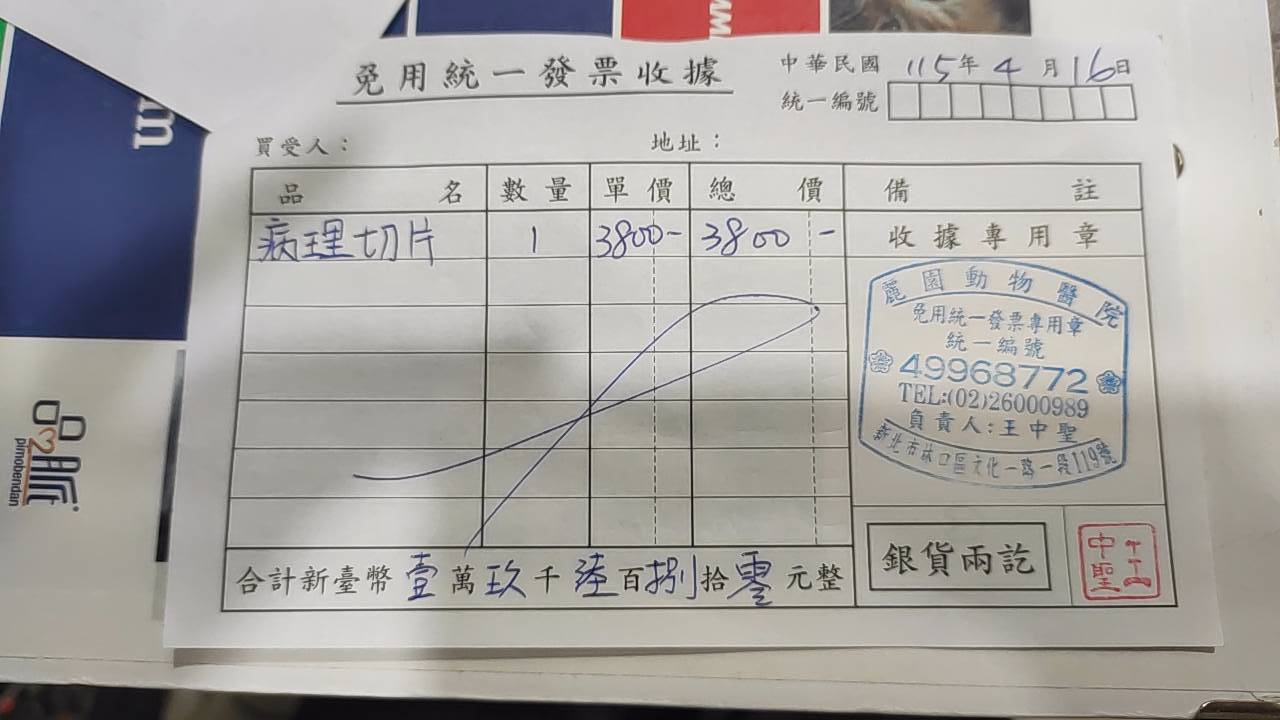 免用統一發票收據
中華民國 115年 4 月 16日
統一編號
買受人：
地址：
品名 數量 單價 總價 備註
病理切片 1 3800- 3800 -
收據專用章
麗園動物醫院
免用統一發票專用章
統一編號
49968772
TEL:(02)26000989
負責人:王中聖
新北市林口區文化一路一段119號
合計新臺幣 壹 萬 玖 千 陸 百 捌 拾 零 元整
銀貨兩訖
王中聖
品脈
pimobendan
m